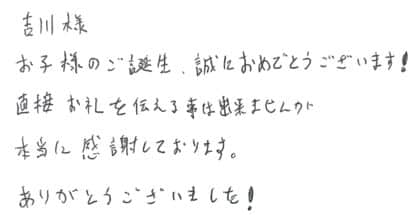 吉川様
お子様のご誕生、誠におめでとうございます!
直接お礼を伝える事は出来ませんが
本当に感謝しております。
ありがとうございました!